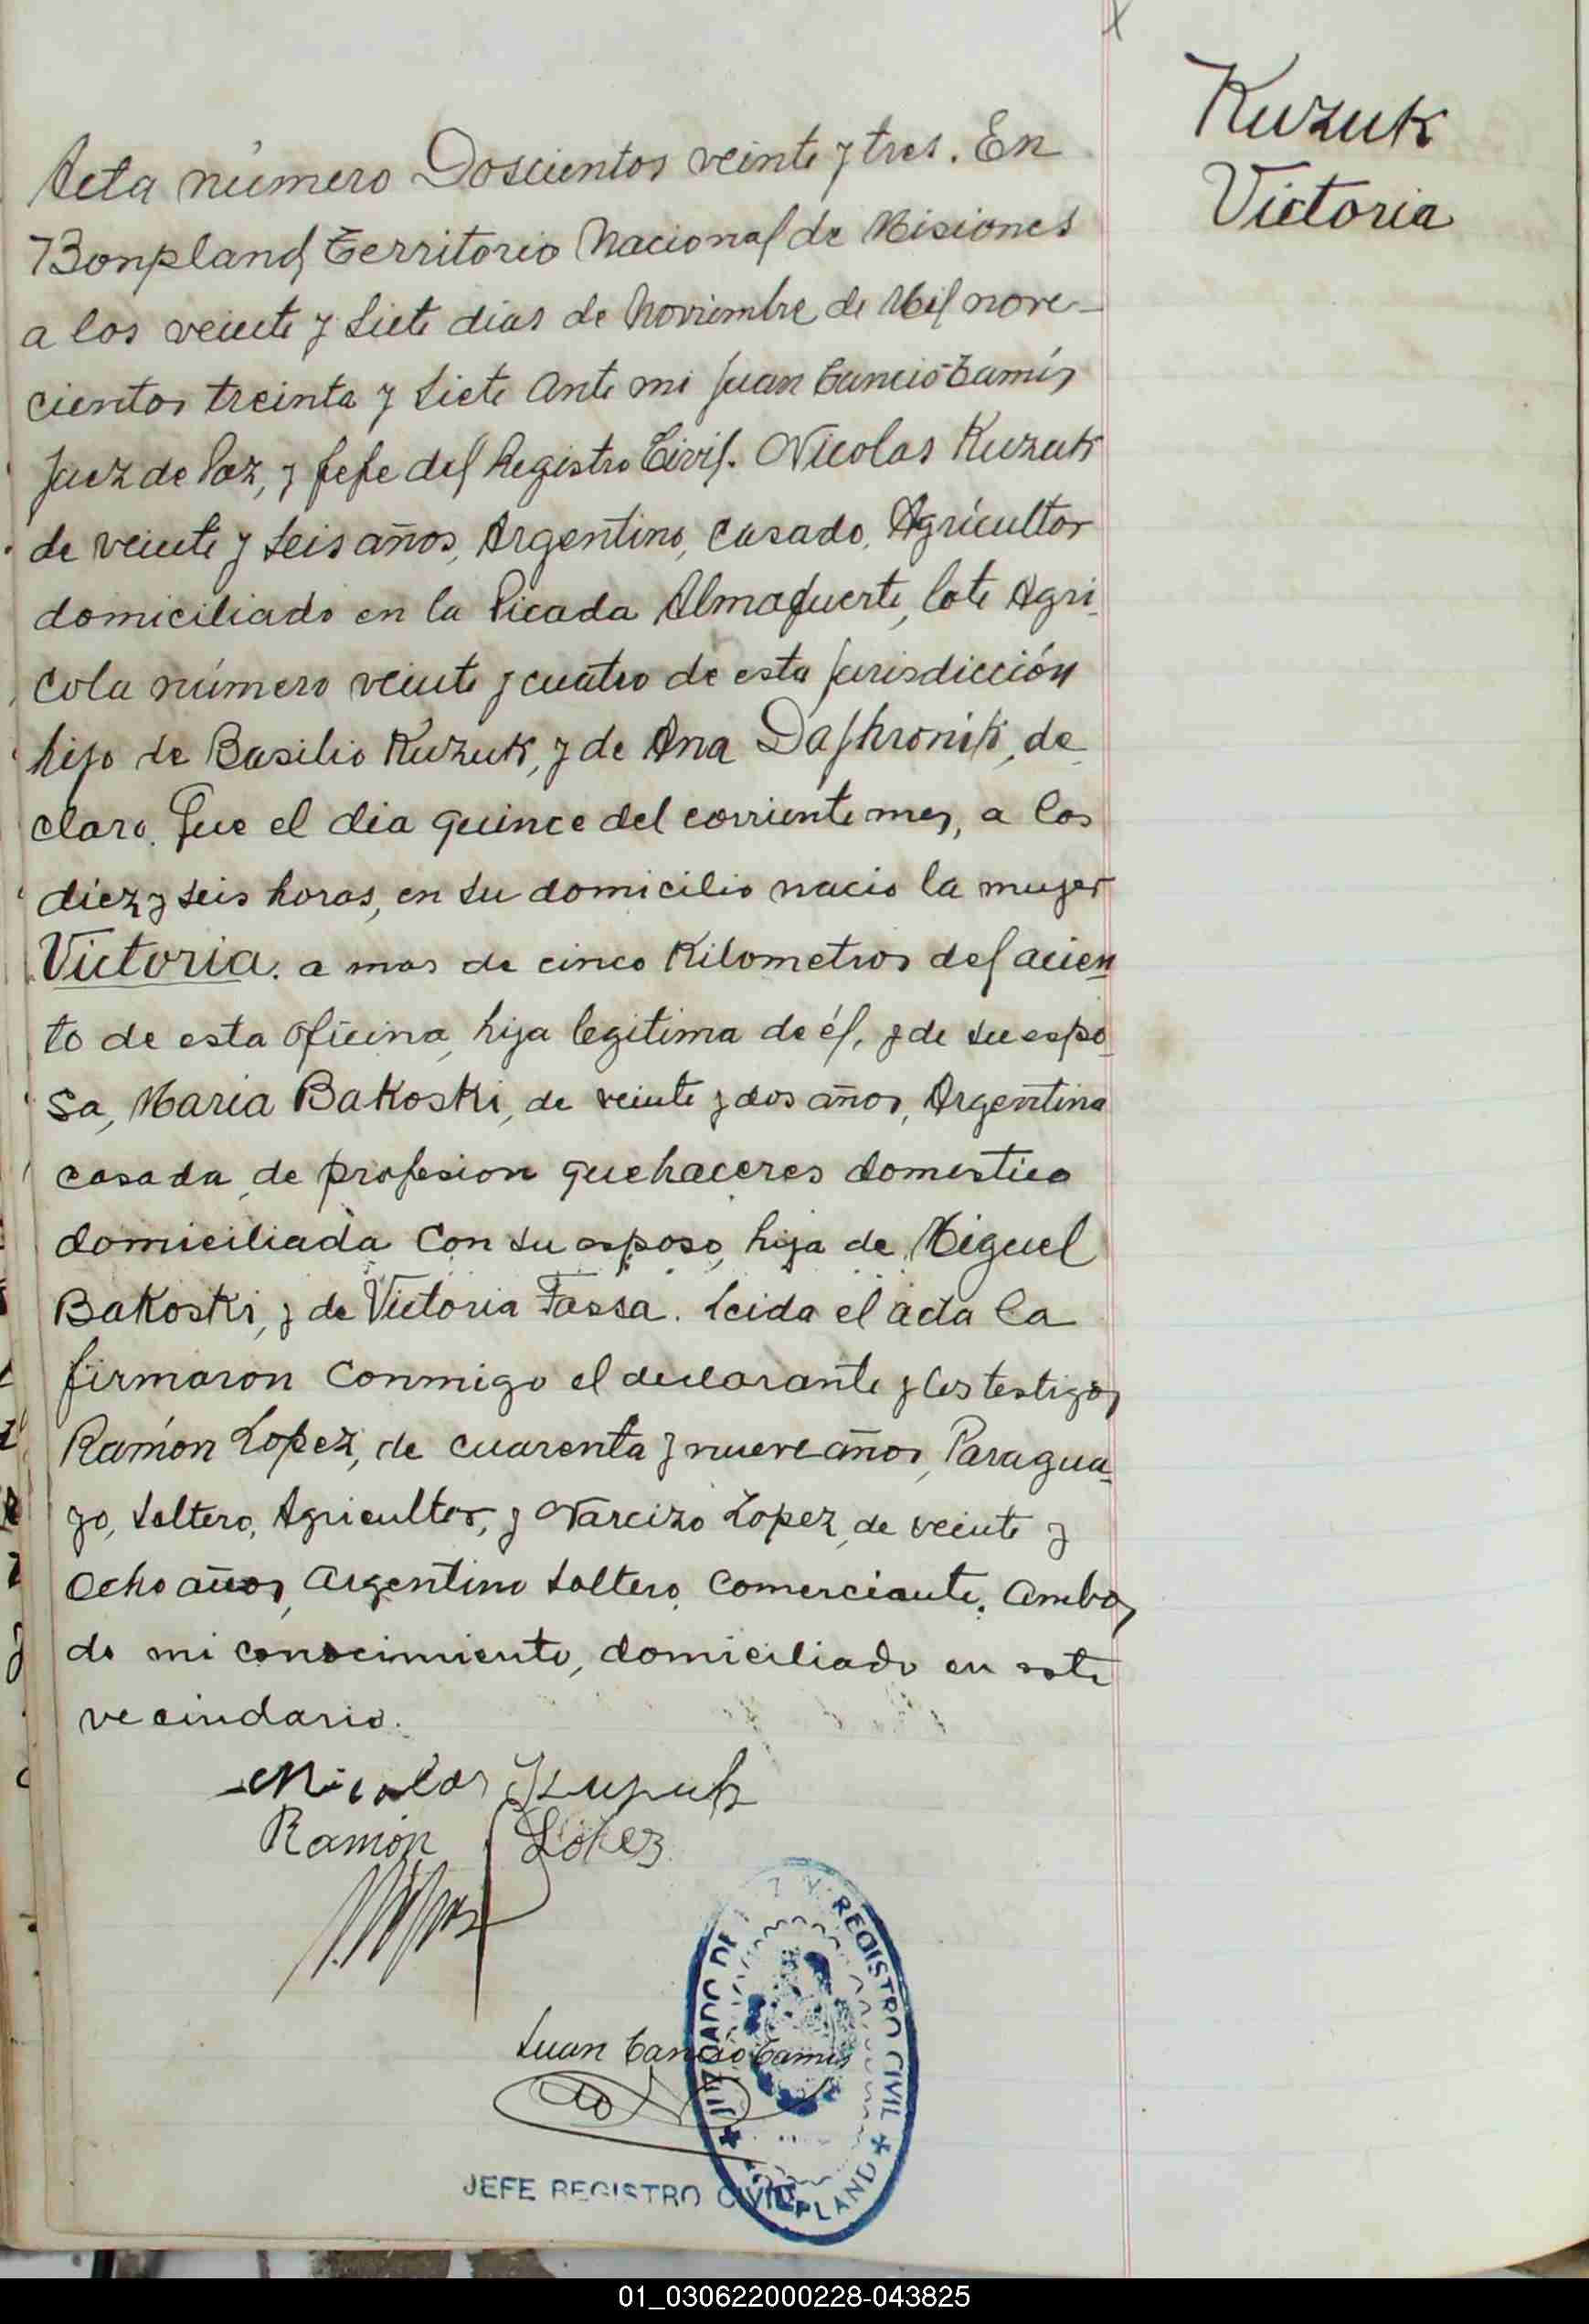 Kuzuk
Victoria
Acta número Doscientos veinte y tres. En
Bonpland Territorio Nacional de Misiones
a los veinte y siete dias de Noviembre de Mil nove-
cientos treinta y siete ante mi Juan Cancio
Juez de Paz, y Jefe del Registro Civil. Nicolas Kuzuk
de veinte y seis años, Argentino, casado, Agricultor
domiciliado en la Picada Almafuerte, lote Agri-
cola número veinte y cuatro de esta jurisdicción
hijo de Basilio Kuzuk, y de Ana de
claro. Que el dia quince del corriente mes, a las
diez y seis horas, en su domicilio nacio la mujer
Victoria. a mas de cinco Kilometros del acien-
to de esta oficina, hija legitima de él, y de su espo-
sa, Maria Bakoski, de veinte y dos años, Argentina
casada, de profesion quehaceres domestico
domiciliada con su esposo, hija de Miguel
Bakoski, y de Victoria Fassa. Leida el acta la
firmaron conmigo el declarante y los testigos
Ramón Lopez, de cuarenta y nueve años, Paragua-
yo, soltero, Agricultor, y Narcizo Lopez, de veinte y
ocho años, Argentino soltero, comerciante. ambos
de mi conocimiento, domiciliado en este
vecindario.
Nicolas Kuzuk
Ramón Lopez
Juan Cancio
JUZGADO DE Y REGISTRO CIVIL
JEFE REGISTRO CIVIL
01_030622000228-043825